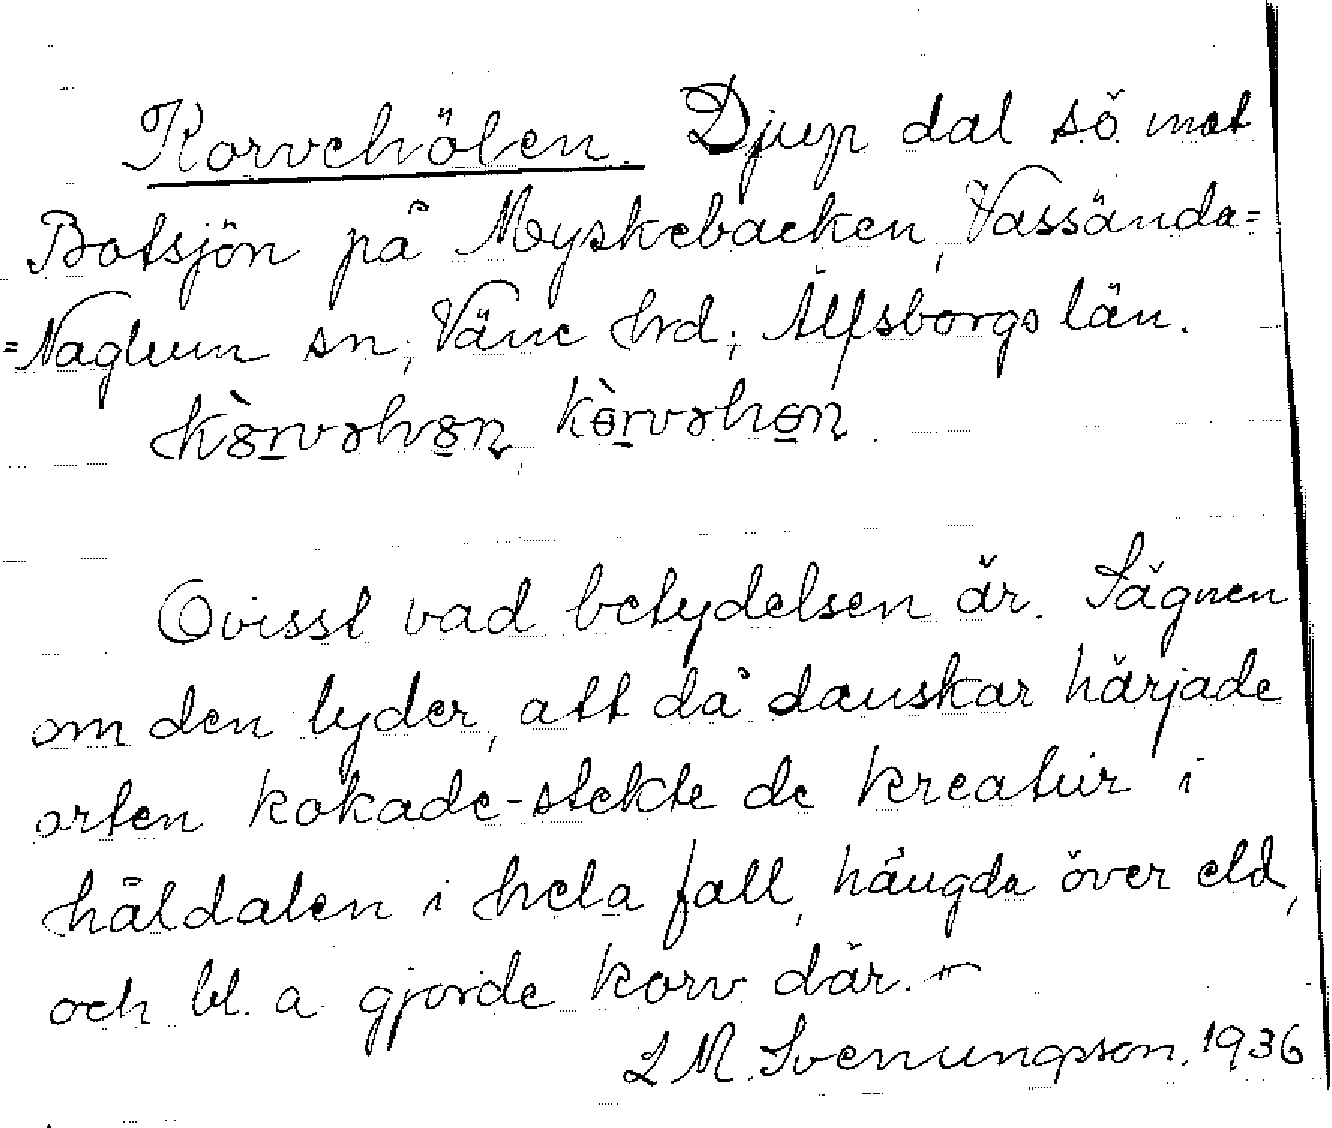 Korvehölen. Djup dal sö mot
Botsjön på Myskebacken, Vassända=
=Naglum sn, Väne hrd, Älfsborgs län.
Ovisst vad betydelsen är. Sägnen
om den lyder, att då danskar härjade
orten kokade-stekte de kreatur i
håldalen i hela fall, hängda över eld,
och bl. a gjorde korv där. -
L M. Svenungsson. 1936